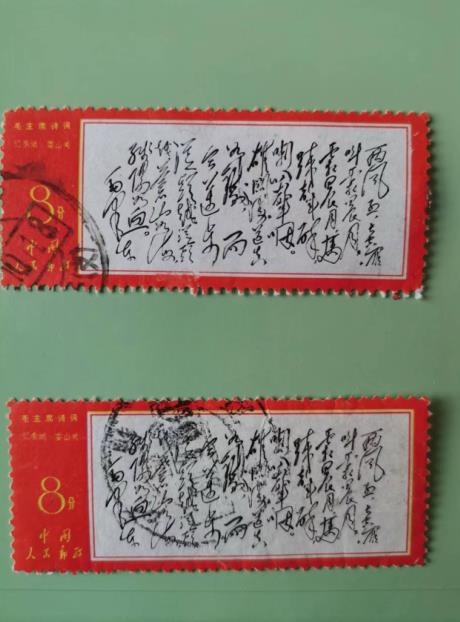 毛主席诗词
忆秦娥·娄山关
8分
中国
人民邮政
西风烈,长空雁
叫霜晨月。
霜晨月,马
蹄声碎,
喇叭声咽。
雄关漫道真
如铁,而
今迈步
从头越,从头
越,苍山如海,
残阳如血。
毛泽东
毛主席诗词
忆秦娥·娄山关
8分
中国
人民邮政
西风烈,长空雁
叫霜晨月。
霜晨月,马
蹄声碎,
喇叭声咽。
雄关漫道真
如铁,而
今迈步
从头越,从头
越,苍山如海,
残阳如血。
毛泽东